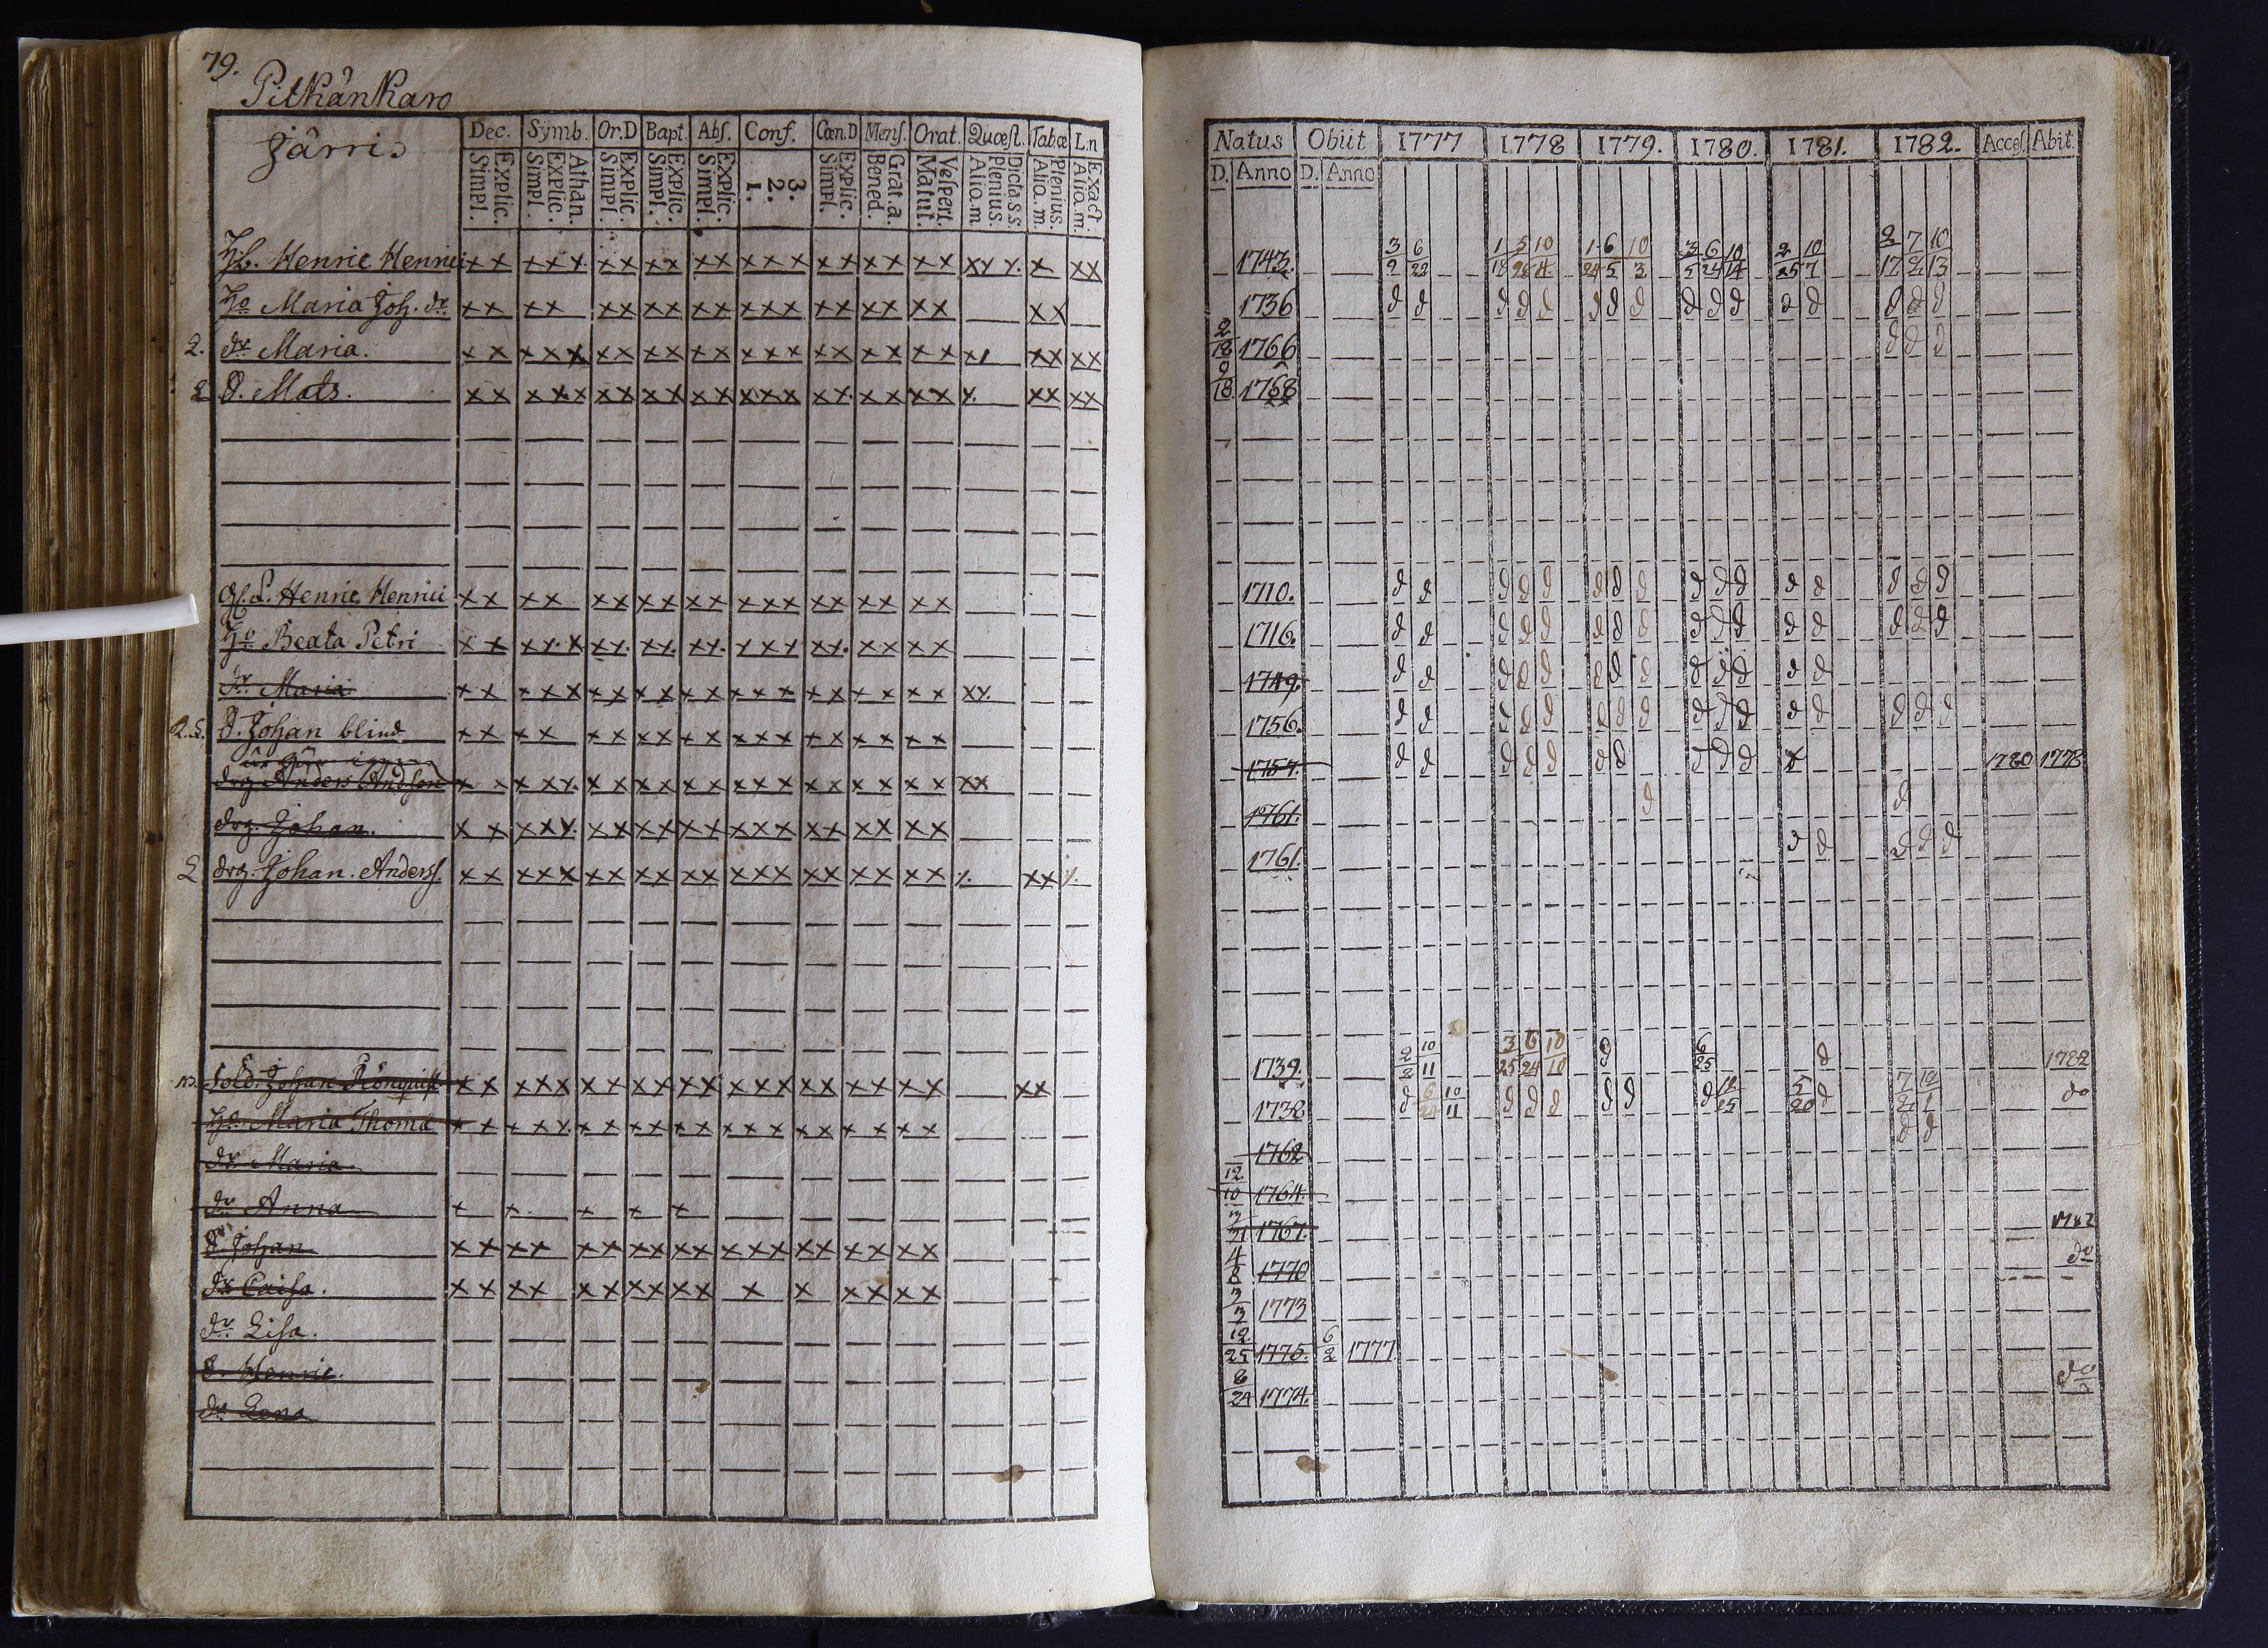 79.
Pitkänkaro
Järris
Dec. Symb. Or.D Bapt. Abs. Conf. Cœn.D Mens. Orat. Quœst. Tabœ L.n
Simpl. Explic. Simpl. Explic. Athan. Simpl. Explic. Simpl. Explic. Simpl. Explic. 1. 2. 3. Simpl. Explic. Bened. Grat.a. Matut. Vespert. Alio.m Plenius. Dicta.s.s. Alio.m. Plenius. Alia.m. Exact.
Hb. Henric Henrici xx xxx xx xx xx xxx xx xx xx xxx x xx
Ho Maria Joh. dr xx xx xx xx xx xxx xx xx xx xx
2. dr Maria. xx xxx xx xx xx xxx xx xx xx x xx xx
2 S. Mats. xx xxx xx xx xx xxx xx xx xx x xx xx
Henric Henrici xx xx xx xx xx xxx xx xx xx
Ho Beata Petri xx xxx xx xx xx xxx xx xx xx
dr Maria xx xxx xx xx xx xxx xx xx xx xx
S. Johan blind xx xx xx xx xx xxx xx xx xx
drg Anders Andson xx xxx xx xx xx xxx xx xx xx xx
drg. Johan. xx xxx xx xx xx xxx xx xx xx
2 drg. Johan. Anderss. xx xxx xx xx xx xxx xx xx xx x xx x
Sold. Johan Rönqvist xx xxx xx xx xx xxx xx xx xx xx
Ho Maria Thomæ xx xxx xx xx xx xxx xx xx xx
dr Maria
dr Anna x x x x x
S. Johan xx xx xx xx xx xxx xx xx xx
dr Caisa. xx xx xx xx xx x x xx xx
dr Lisa.
S. Henric.
dr Lena
Natus Obiit 1777 1778 1779. 1780. 1781. 1782. Acces. Abit.
D. Anno D. Anno
1743. 3/9 6/22 1/18 5/28 10/4 1/24 6/5 10/3 3/5 6/24 10/14 2/25 10/7 2/17 7/2 10/13
1736 d d d d d d d d d d d d d d d d
2/18 1766 d d d
9/18 1768
1710. d d d d d d d d d d d d d d d d
1716. d d d d d d d d d d d d d d d d
1749. d d d d d d d d d d d d d
1756. d d d d d d d d d d d d d d d d
1757. d d d d d d d d d d x 1780 1778
1761. d d
1761. d d d d d
1739. 2/2 10/11 3/25 6/24 10/10 d 6/25 d 1782
1738 d 10/11 d d d d d d 5/20 d 7/2 12/1 do
1762 d d
12/10 1764.
1767. 1782
4/8 1770 do
3/3 1773
12/25 1775. 6/2 1777
8/24 1774. do